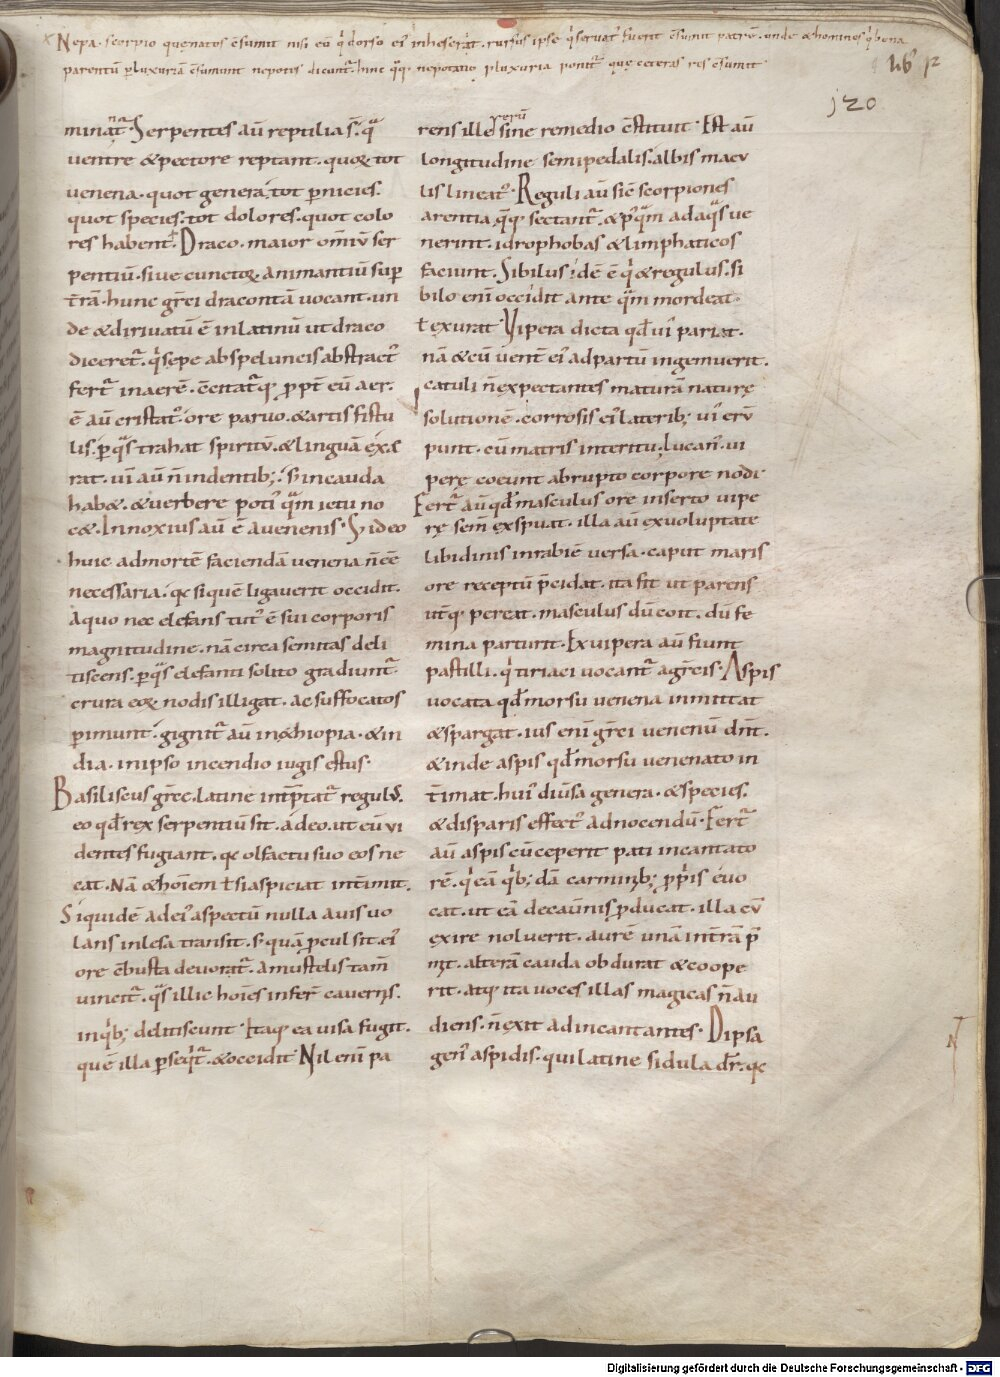 Nepa. scorpio que natos c̄sumit nisi eū q̇ dorso ei᷒ inheserat. rursus ipse q̇ seruat᷒ fuerit c̄sumit patrē. unde & homines q̇ bona
parentū p̱ luxuriā c̄sumunt nepotes dicunt᷑. hinc q̊q; nepotatio p̱ luxuria ponit᷑ quę ceteras res c̄sumit
120
minant᷑. Serpentes aū reptilia s̄. q̇a
uentre & pectore reptant. quoꝝ tot
uenena. quot genera. tot p̱nicies.
quot species. tot dolores. quot colo
res habent᷑. Draco. maior om̄iū ser
pentiū. siue cunctoꝝ animantiū sup̱
t̄rā. hunc gr̄ci dracontā uocant. un
de & diriuatū ē in latinū ut draco
diceret᷑. q̇ sepe ab speluncis abstract᷒
fert᷑ in aerē. c̄citat᷑q; ꝓpt̄ eū aer.
ē aū cristat᷒. ore paruo. & artis fistu
lis. p̱ q̇s trahat spiritū. & linguā exę
rat. uī aū n̄ in dentib;. s; in cauda
hab&. & uerbere poti᷒ q̇m ictu no
c&. Innoxius aū ē a uenenis. S; ideo
huic ad mortē faciendā uenena n̄ eē
necessaria. q̇a siquē ligauerit occidit.
A quo nec elefans tut᷒ ē sui corporis
magnitudine. nā circa semitas deli
tiscens. p̱ q̇s elefanti solito gradiunt᷑
crura eoꝝ nodis illigat. ac suffocatos
p̱imunt. gignit᷑ aū in &hiopia. & in
dia. in ipso incendio iugis ęstus.
Basiliscus grēc. latine int̄p̄tat᷑ regul᷒.
eo qđ rex serpentiū sit. adeo. ut eū ui
dentes fugiant. q̇a olfactu suo eos ne
cat. Nā & hoīem ł si aspiciat int̄imit.
Siquidē ad ei᷒ aspectū nulla auis uo
lans inlesa transit. s; quā ꝓcul sit. ei᷒
ore c̄busta deuorat᷑. a mustelis tam̄
uincit᷑. q̇s illic hoīes infer̄t cauernis.
in q̇b; delitiscunt. Itaq; ea uisa fugit.
quē illa p̱seq̇t᷑. & occidit. Nil eni pa
rens ille rerū sine remedio c̄stituit. Est aū
longitudine semipedalis. albis macu
lis lineat᷒. Reguli aū sic̄ scorpiones
arentia q̄q; sectant᷑. & p᷒ q̇m ad aq̇s ue
nerint. idrophobas & limphaticos
faciunt. Sibilus idē ē q̇ & regulus. si
bilo eni occidit ante q̇m mordeat.
ł exurat. Vipera dicta qđ ui pariat.
nā & cū uent̄ ei᷒ ad partū ingemuerit.
catuli n̄ expectantes maturā naturę
solutionē. corrosis ei᷒ laterib; ui erū
punt. cū matris interitu. Lucan᷒. ui
perę coeunt abrupto corpore nodi.
Fert᷑ aū qđ masculus ore inserto uipe
rę sem̄ exspuat. illa aū ex uoluptate
libidinis in rabiē uersa. caput maris
ore receptū p̄cidat. ita fit ut parens
ut̄q; pereat. masculus dū coit. dū fe
mina parturit. Ex uipera aū fiunt
pastilli. q̇ tiriaci uocant᷑ a gr̄eis. Aspis
uocata qđ morsu uenena inmittat
& spargat. ius eni gr̄ci uenenū dn̄t.
& inde aspis qđ morsu uenenato in
t̄imat. hui᷒ diu̇sa genera. & species.
& disparis effect᷒ ad nocendū. Fert᷑
aū aspis cū ceperit pati incantato
rē. q̇ eā q̇b; dā carminib; ꝓpriis euo
cat. ut eā de cauernis ꝓducat. illa cū
exire noluerit. aurē unā in t̄rā p̄
mit. alterā cauda obdurat & coope
rit. atq; ita uoces illas magicas n̄ au
diens. n̄ exit ad incantantes. Dipsa
gen᷒ aspidis. qui latine situla dr̄. q̇a
Digitalisierung gefördert durch die Deutsche Forschungsgemeinschaft - DFG